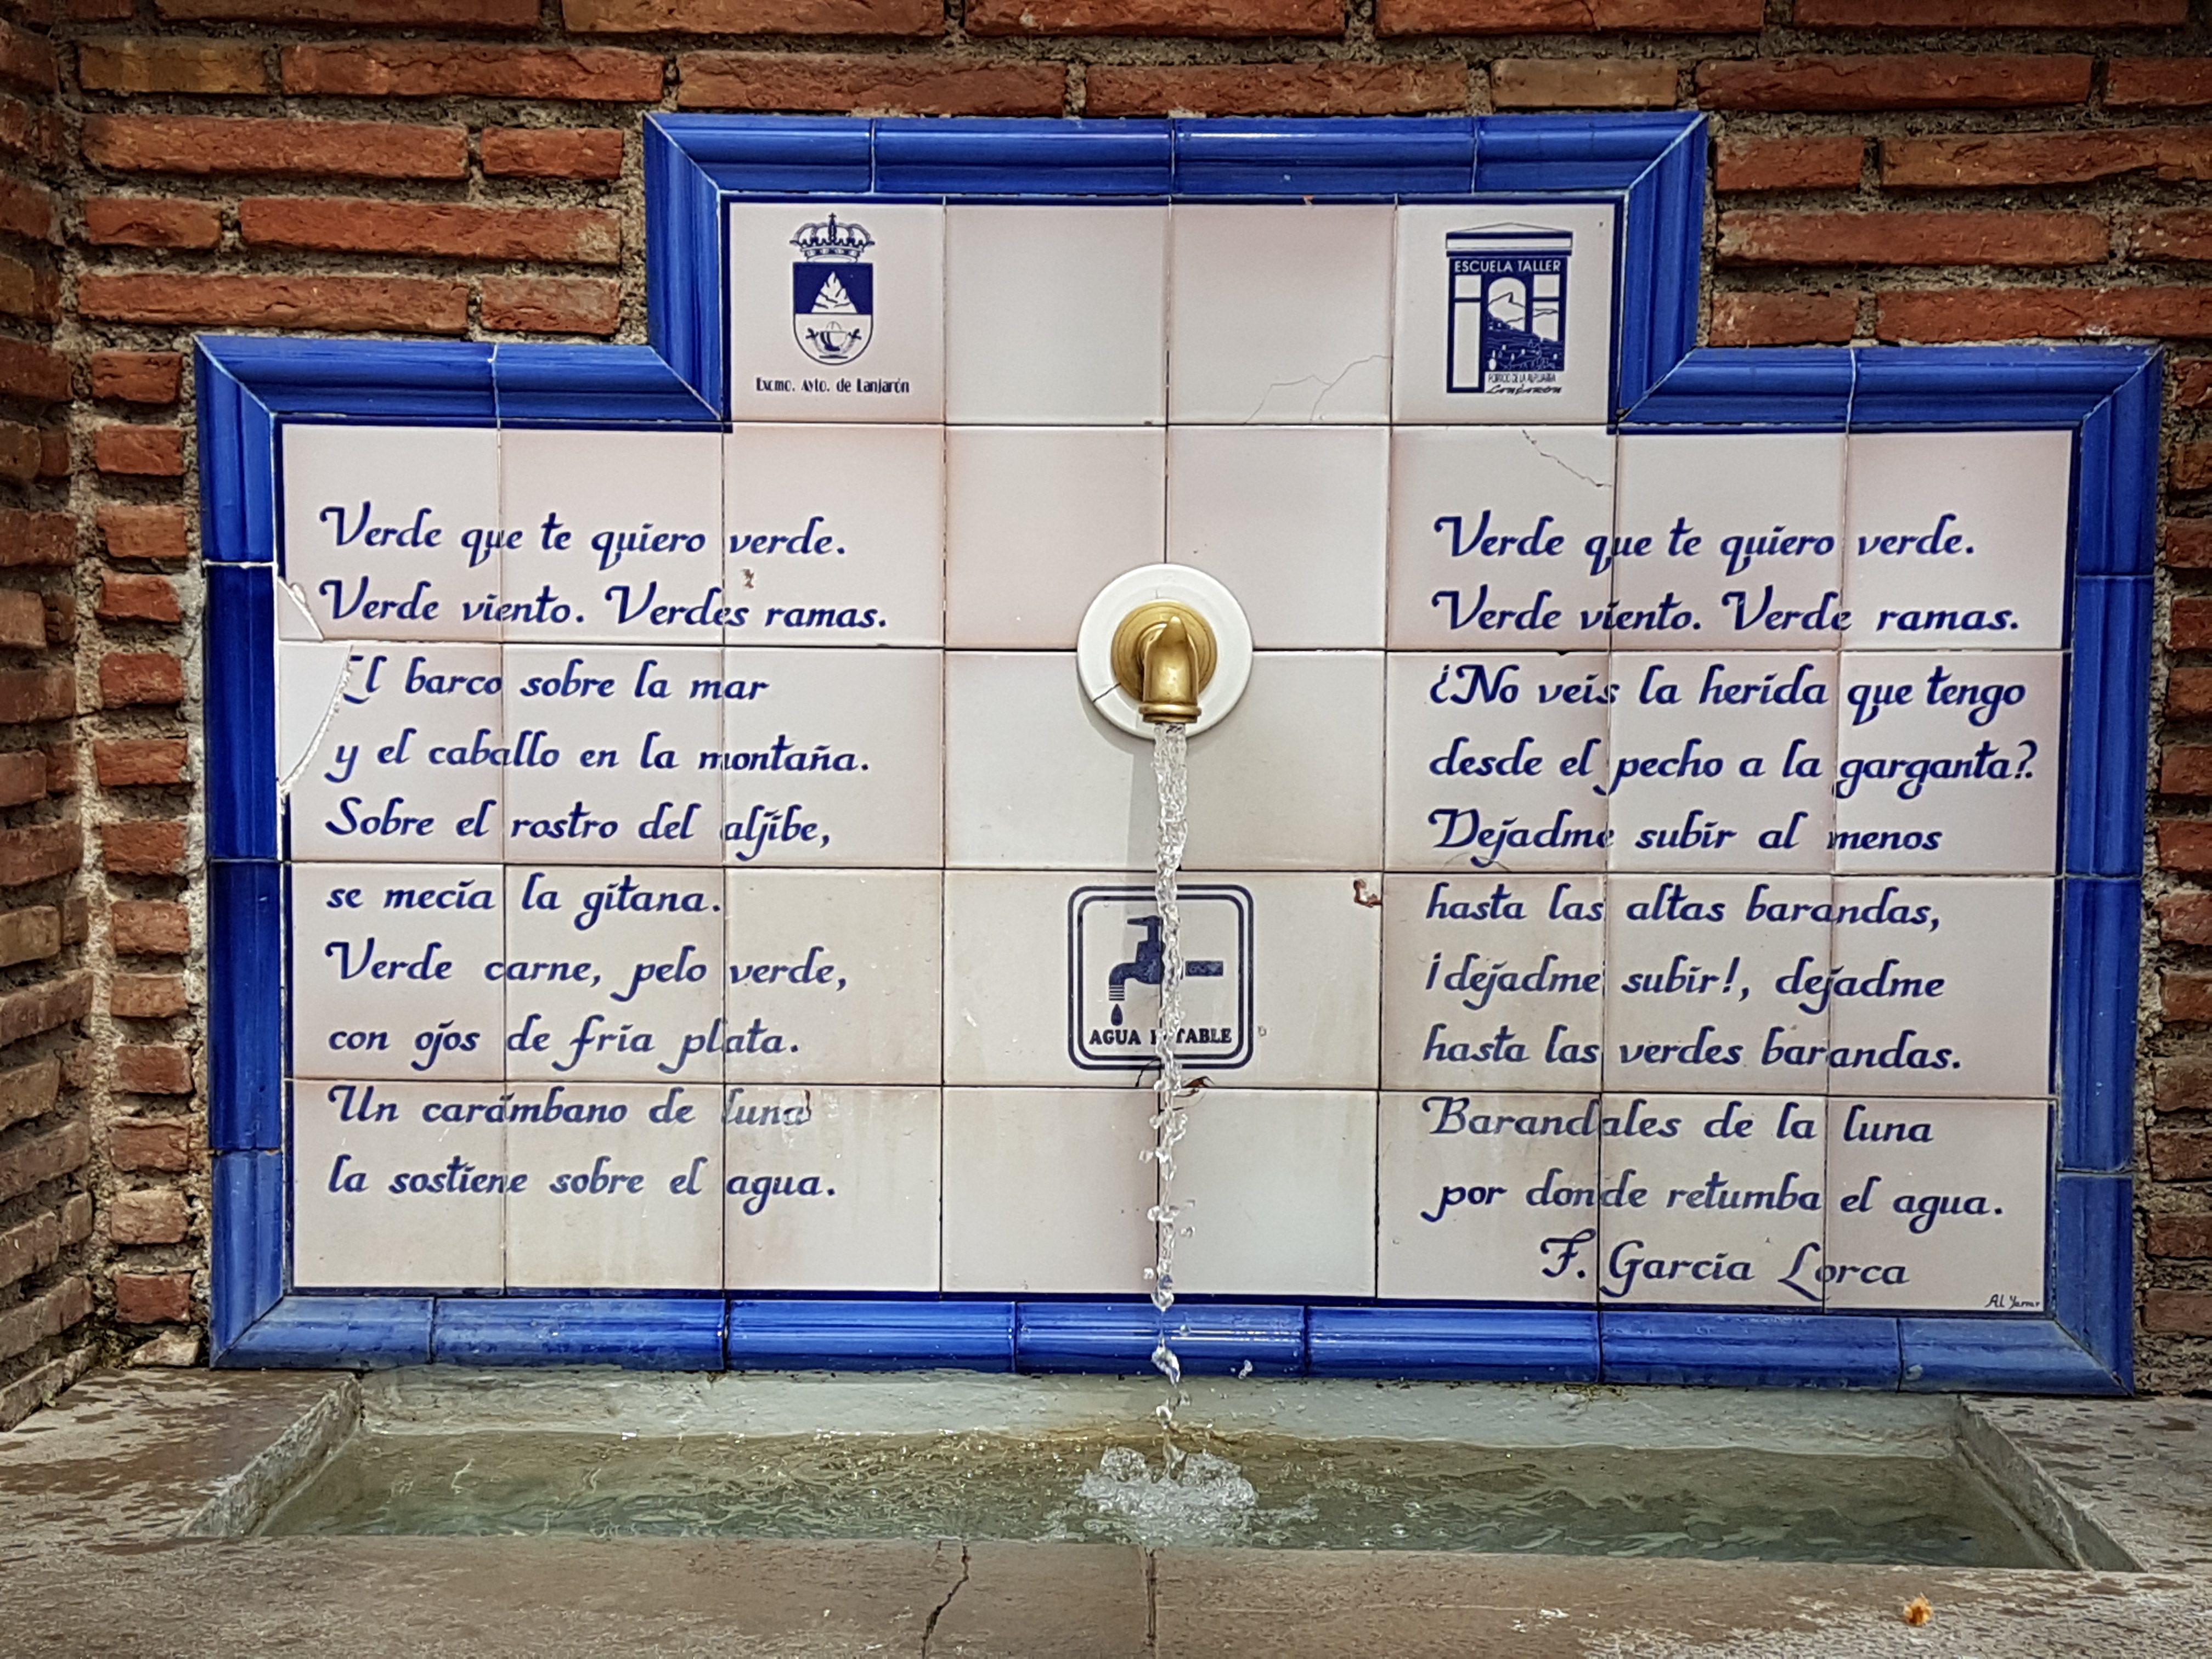 Excmo. Ayto. de Lanjarón
ESCUELA TALLER
PORTICO DE LA ALPUJARRA
Lanjarón
Verde que te quiero verde.
Verde viento. Verdes ramas.
El barco sobre la mar
y el caballo en la montaña.
Sobre el rostro del aljibe,
se mecía la gitana.
Verde carne, pelo verde,
con ojos de fría plata.
Un carámbano de luna
la sostiene sobre el agua.
AGUA POTABLE
Verde que te quiero verde.
Verde viento. Verde ramas.
¿No veis la herida que tengo
desde el pecho a la garganta?
Dejadme subir al menos
hasta las altas barandas,
¡dejadme subir!, dejadme
hasta las verdes barandas.
Barandales de la luna
por donde retumba el agua.
F. García Lorca